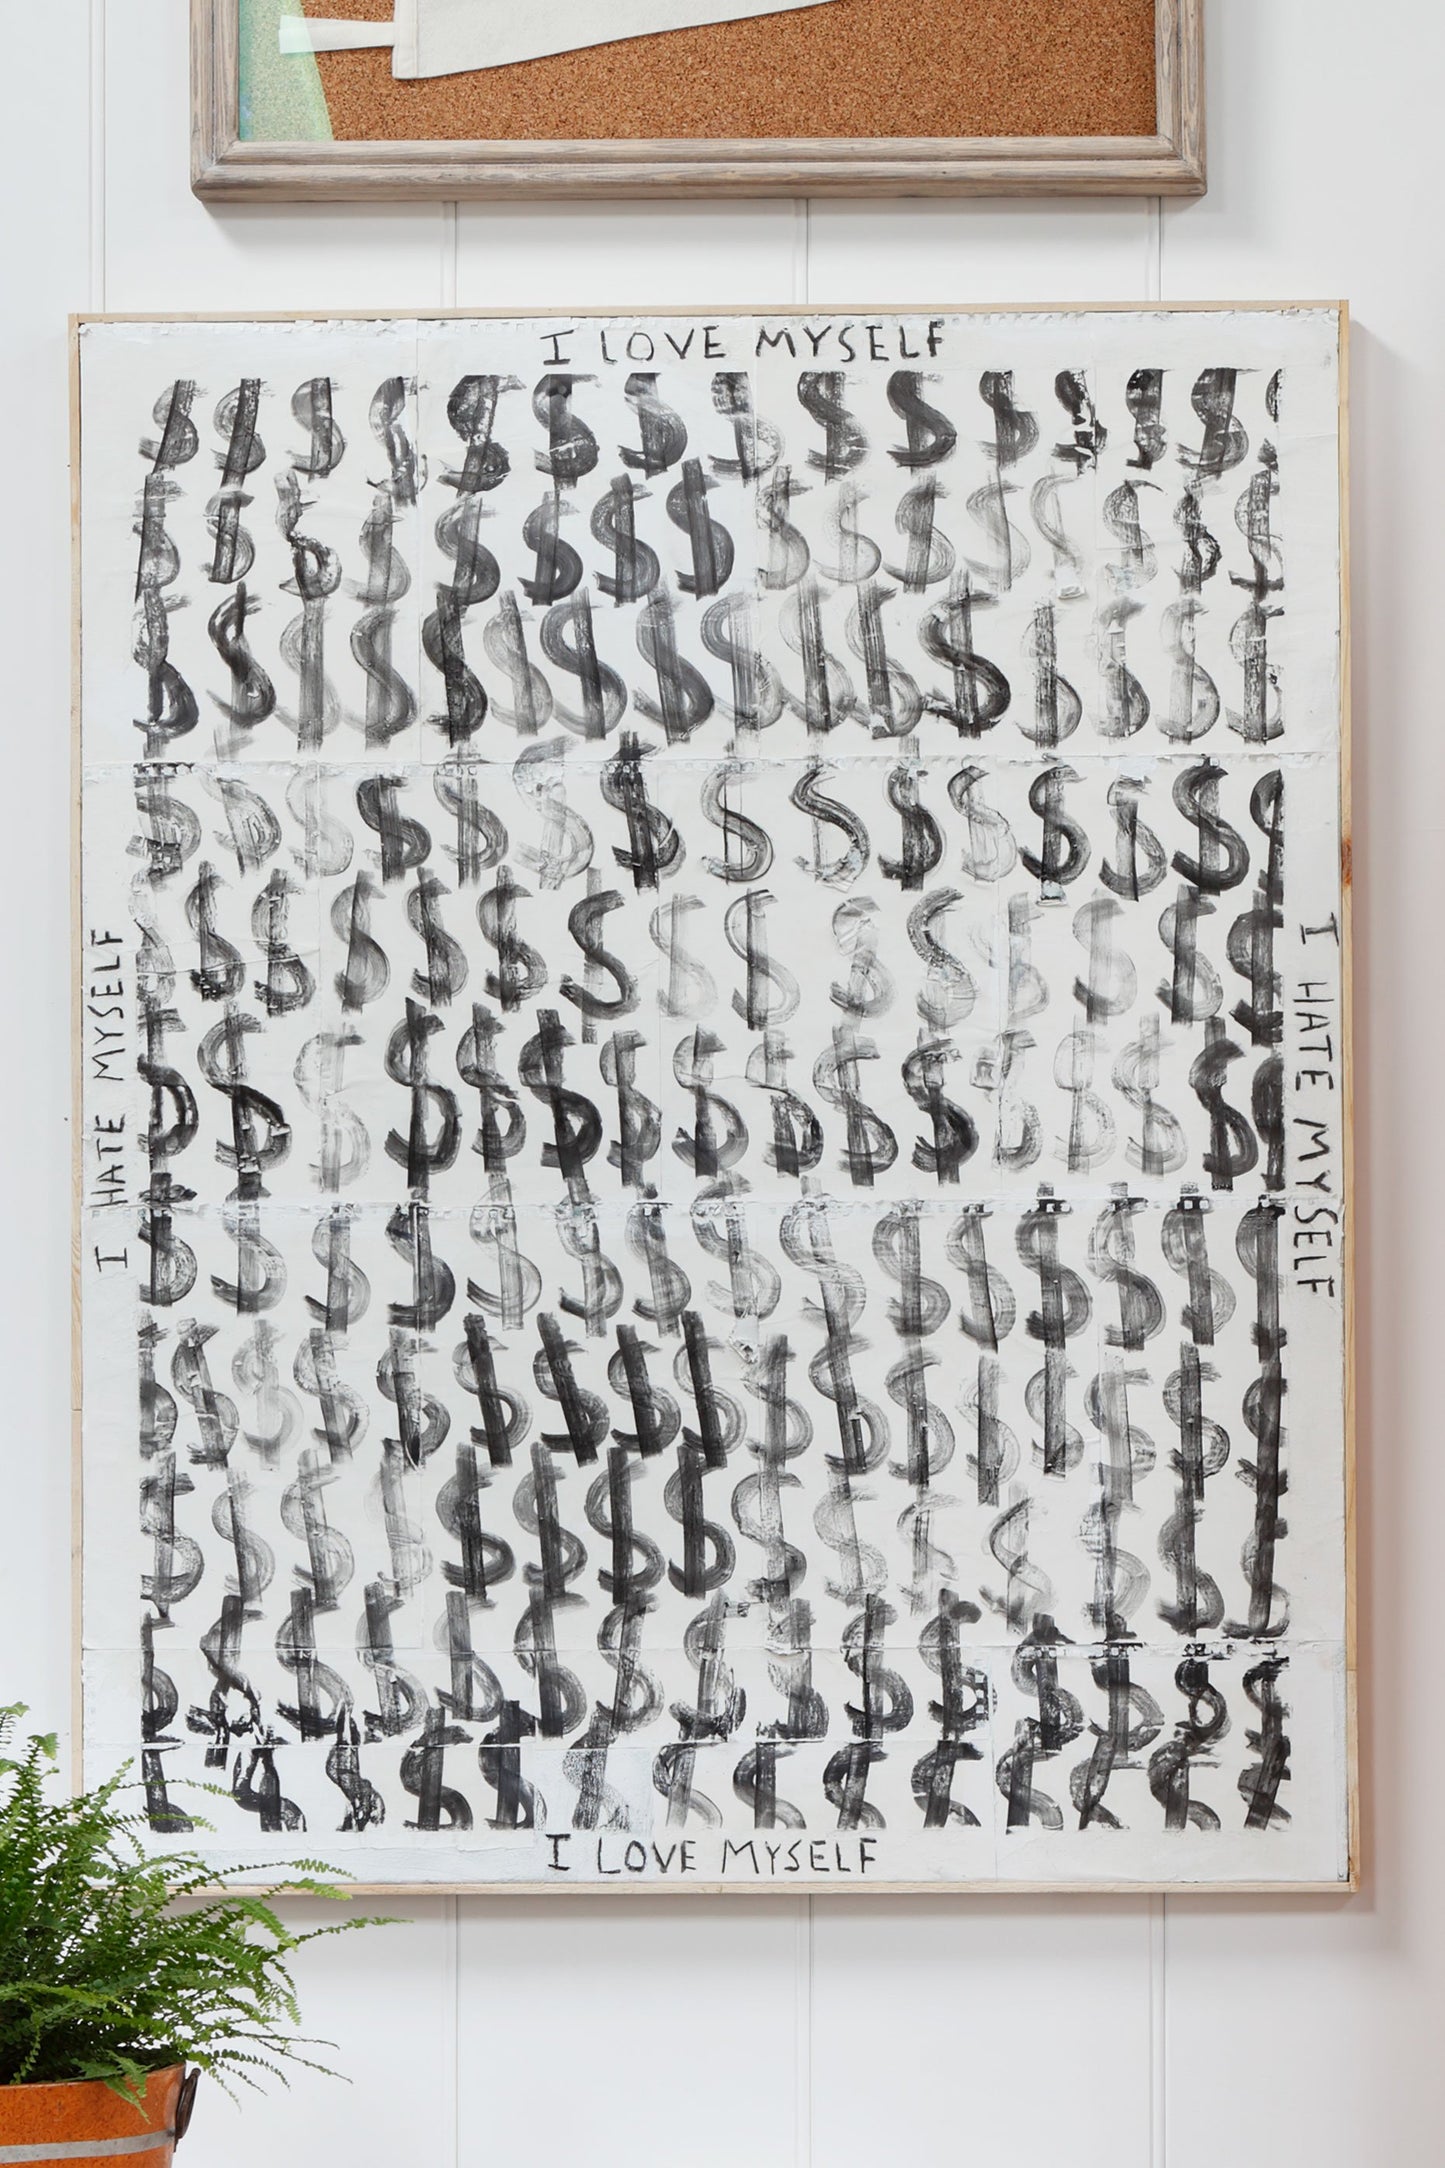 I LOVE MYSELF
I HATE MYSELF
I HATE MYSELF
I LOVE MYSELF